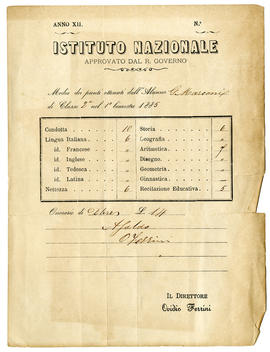 ANNO XII. N.º
ISTITUTO NAZIONALE
APPROVATO DAL R. GOVERNO
Media dei punti ottenuti dall'Alunno G. Marconi
di Classe 2ª nel 1º bimestre 1885
Condotta 10 Storia 6
Lingua Italiana 6 Geografia »
id. Francese » Aritmetica 7
id. Inglese » Disegno »
id. Tedesca » Geometria »
id. Latina » Ginnastica »
Nettezza 6 Recitazione Educativa 5
Onorario di L. 14
A Saldo
O Ferrini
IL DIRETTORE
Ovidio Ferrini